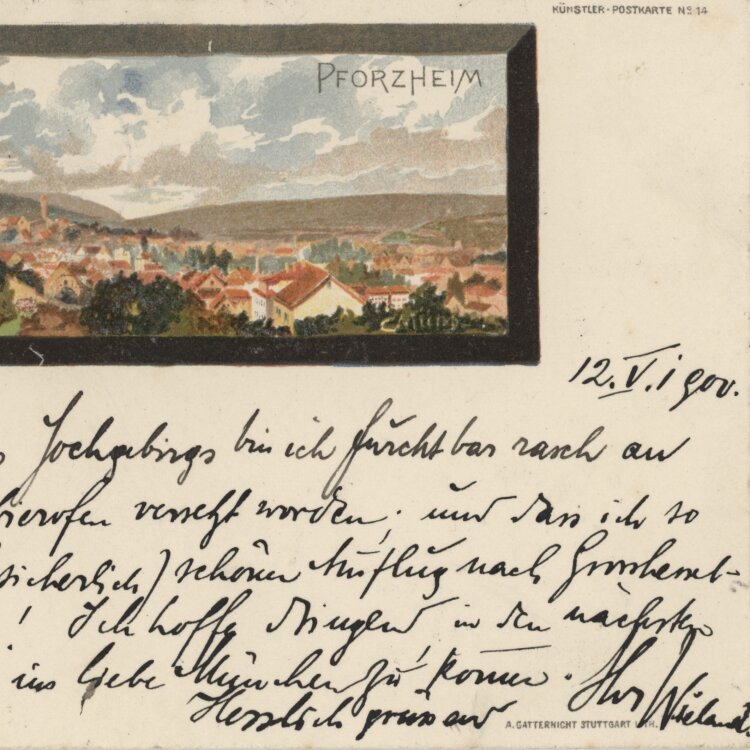 KÜNSTLER-POSTKARTE No 14
PFORZHEIM
12.V.1900.
Hochgebirgs bin ich furchtbar rasch an
versetzt worden, und dass ich so
sicherlich) schönen Ausflug nach
! Ich hoffe dringend in den nächsten
ins liebe München zu komen.
Herzlich grüssend
A. GATTERNICHT STUTTGART LITH.